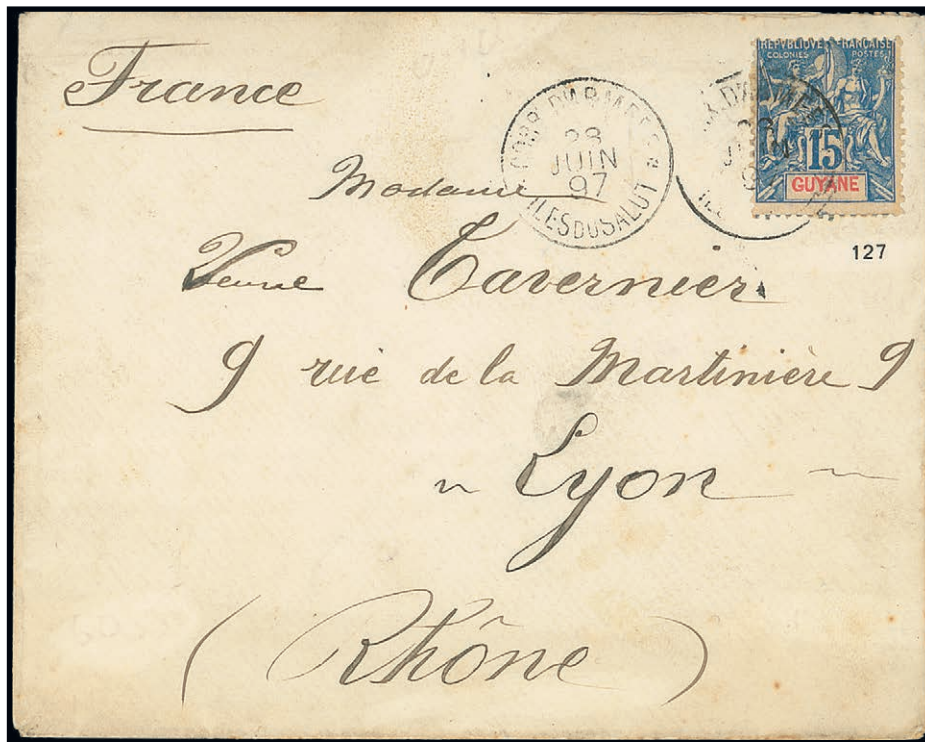 France
CORR. D'ARMEES
28
JUIN
97
ILES DU SALUT
REPUBLIQUE FRANCAISE
COLONIES POSTES
15
GUYANE
127
Madame
Veuve Tavernier
9 rue de la Martinière 9
~ Lyon ~
(Rhône)